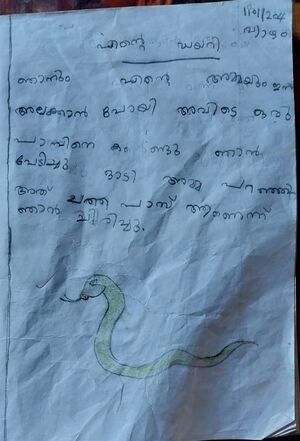 11/01/2024
വ്യാഴം
എന്റെ ഡയറി
ഞാനും എന്റെ അമ്മയും ഇന്ന്
അലക്കാൻ പോയി അവിടെ ഒരു
പാമ്പിനെ കണ്ടു ഞാൻ
പേടിച്ചു ഓടി അമ്മ പറഞ്ഞു
അത് ചത്ത പാമ്പ് ആണെന്ന്
ഞാൻ ചിരിച്ചു.